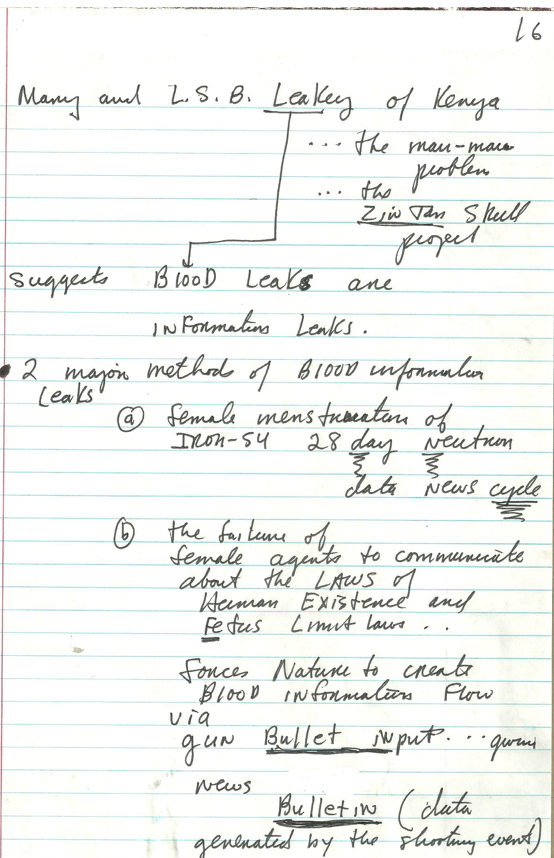 16
Many and L. S. B. Leakey of Kenya
... the mau-mau
problem
... the
Zin Tan Skull
project
suggests BlOOD Leaks are
INFormation Leaks.
• 2 major methods of BlOOD information
Leaks
(a) female menstruation of
IRON-54 28 day Neutron
data News cycle
(b) the failure of
female agents to communicate
about the LAWS of
Human Existence and
Fetus Limit laws . .
forces Nature to create
BlOOD information Flow
via
gun Bullet input ...
news
Bulletin (data
generated by the shooting event)